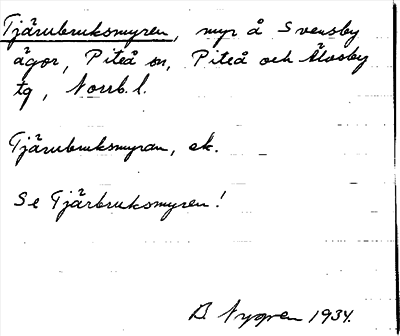 Tjärubruksmyren, myr å Svensby
ägor, Piteå sn, Piteå och Älvsby
tg, Norrb. l.
Tjärubruksmyran, ek.
Se Tjärbruksmyren!
B Nygren 1934.